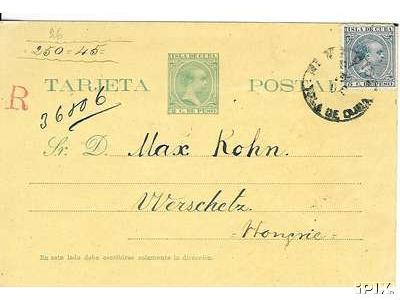 26
250-45-
ISLA DE CUBA
ISLA DE CUBA
TARJETA POSTAL
5 C. DE PESO
R
36806
DE CUBA
Sr. D. Max Kohn.
Werschetz.
-Hongrie-
En este lado debe escribirse solamente la dirección.
iPIX